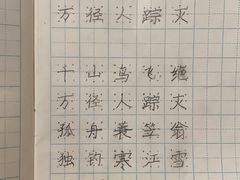 万径人踪灭
千山鸟飞绝
万径人踪灭
孤舟蓑笠翁
独钓寒江雪